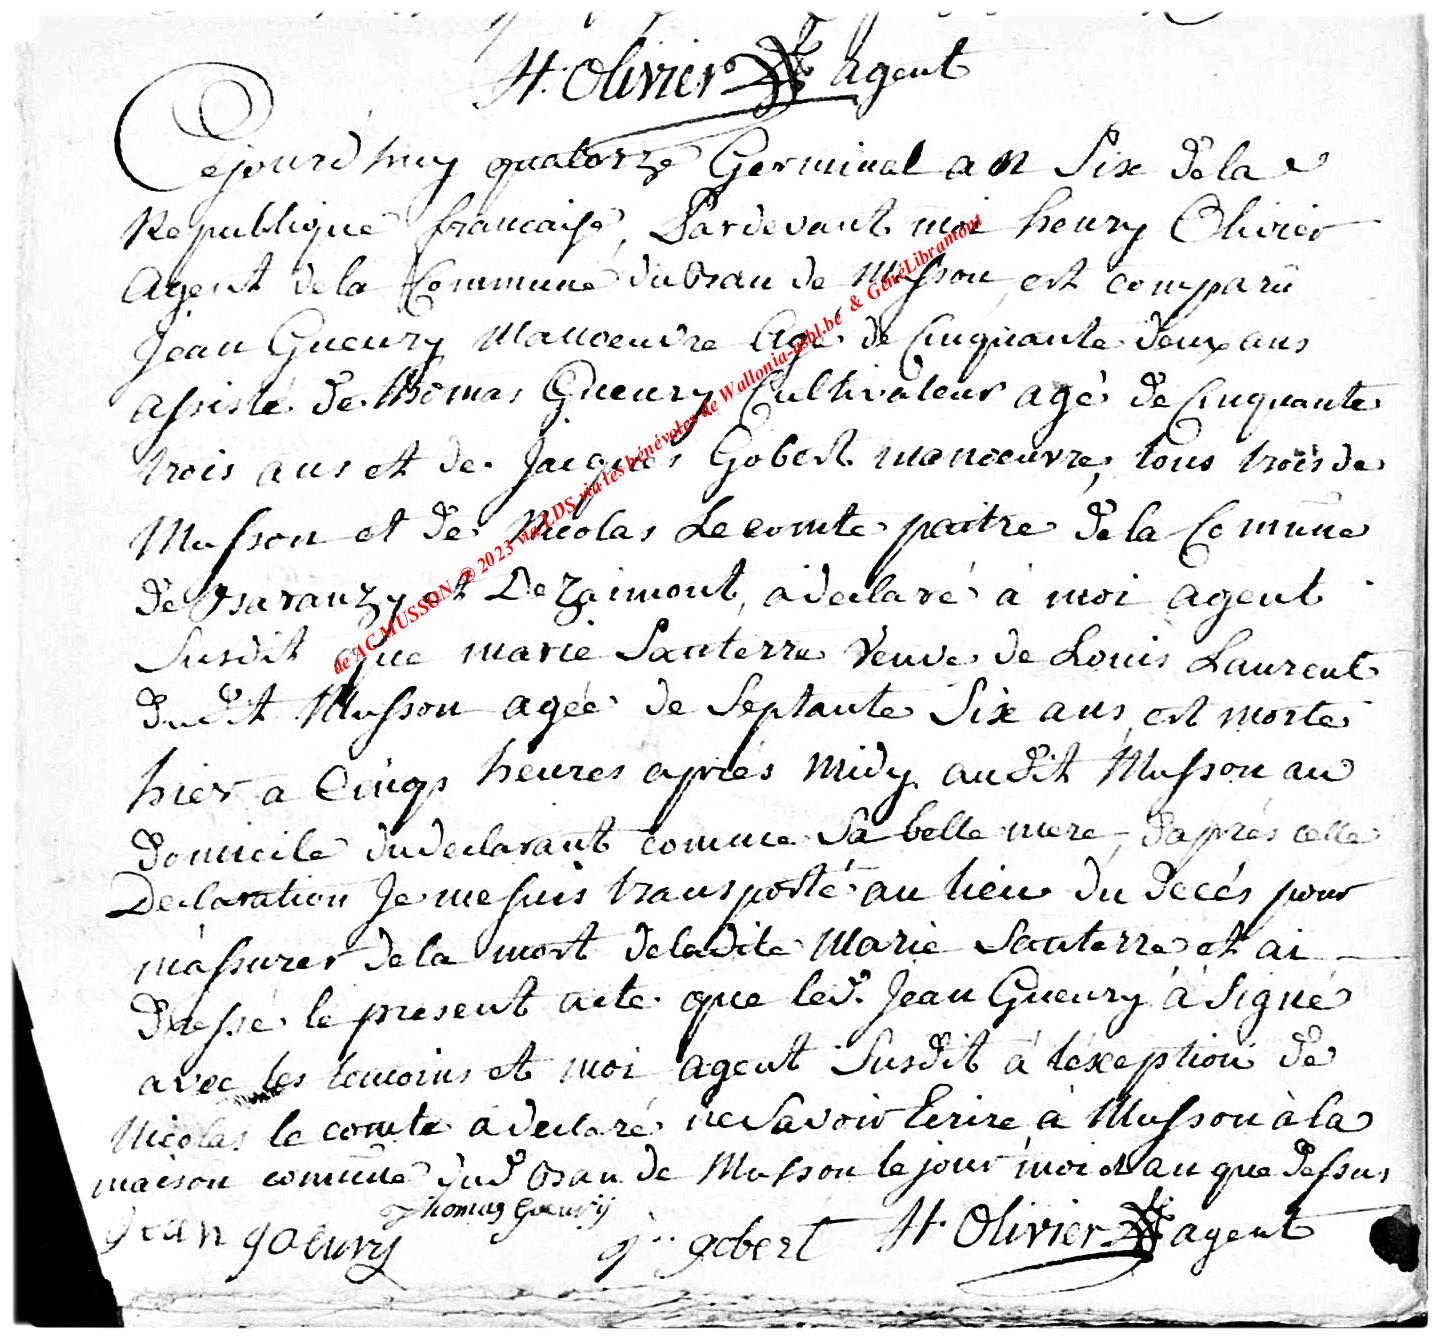 H. Olivier agent
Cejourd'huy quatorze Germinal an Six dela
Republique francaise, Pardevant moi henry Olivier
Agent dela Commune du Ban de Musson, est comparü
Jean Gueury Manoeuvre Agé de Cinquante deux ans
assisté de thomas Gueury Cultivateur agé de Cinquante
trois ans et de Jacques Gobert manoeuvre, tous trois de
Musson et de Nicolas Lecomte paitre dela Commune
de Baranzy et Dezaimont, a declaré à moi Agent
Susdit que marie Santerre Veuve de Louis Laurent
dudit Musson agée de Septante Six ans, est morte
hier a Cinqs heures après Midy audit Musson au
domicile du declarant comme Sa belle mere, d'après cette
Declaration Je me suis transporté au lieu du decés pour
m'assurer dela mort deladite Marie Santerre et ai
dressé le present acte que led. Jean Gueury à Signé
avec les temoins et moi agent Susdit à léxeption de
Nicolas le comte a declaré ne Savoir Ecrire à Musson à la
maison commune dud. Ban de Musson le jour moi et an que dessus
Thomas Gueury
Jean gueury J.. gobert H. Olivier agent
de AC MUSSON ® 2023 via LDS via les bénévoles de Wallonia-asbl.be & GénéLibramont